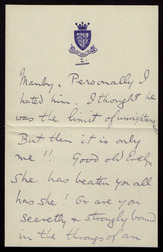 Manby. Personally I
hated him, I thought he
was the limit of
But then it is only
me!! Good old Evelyn
She has beaten you all
has she! Or are you
secretly & strongly bound
in the throngs of an